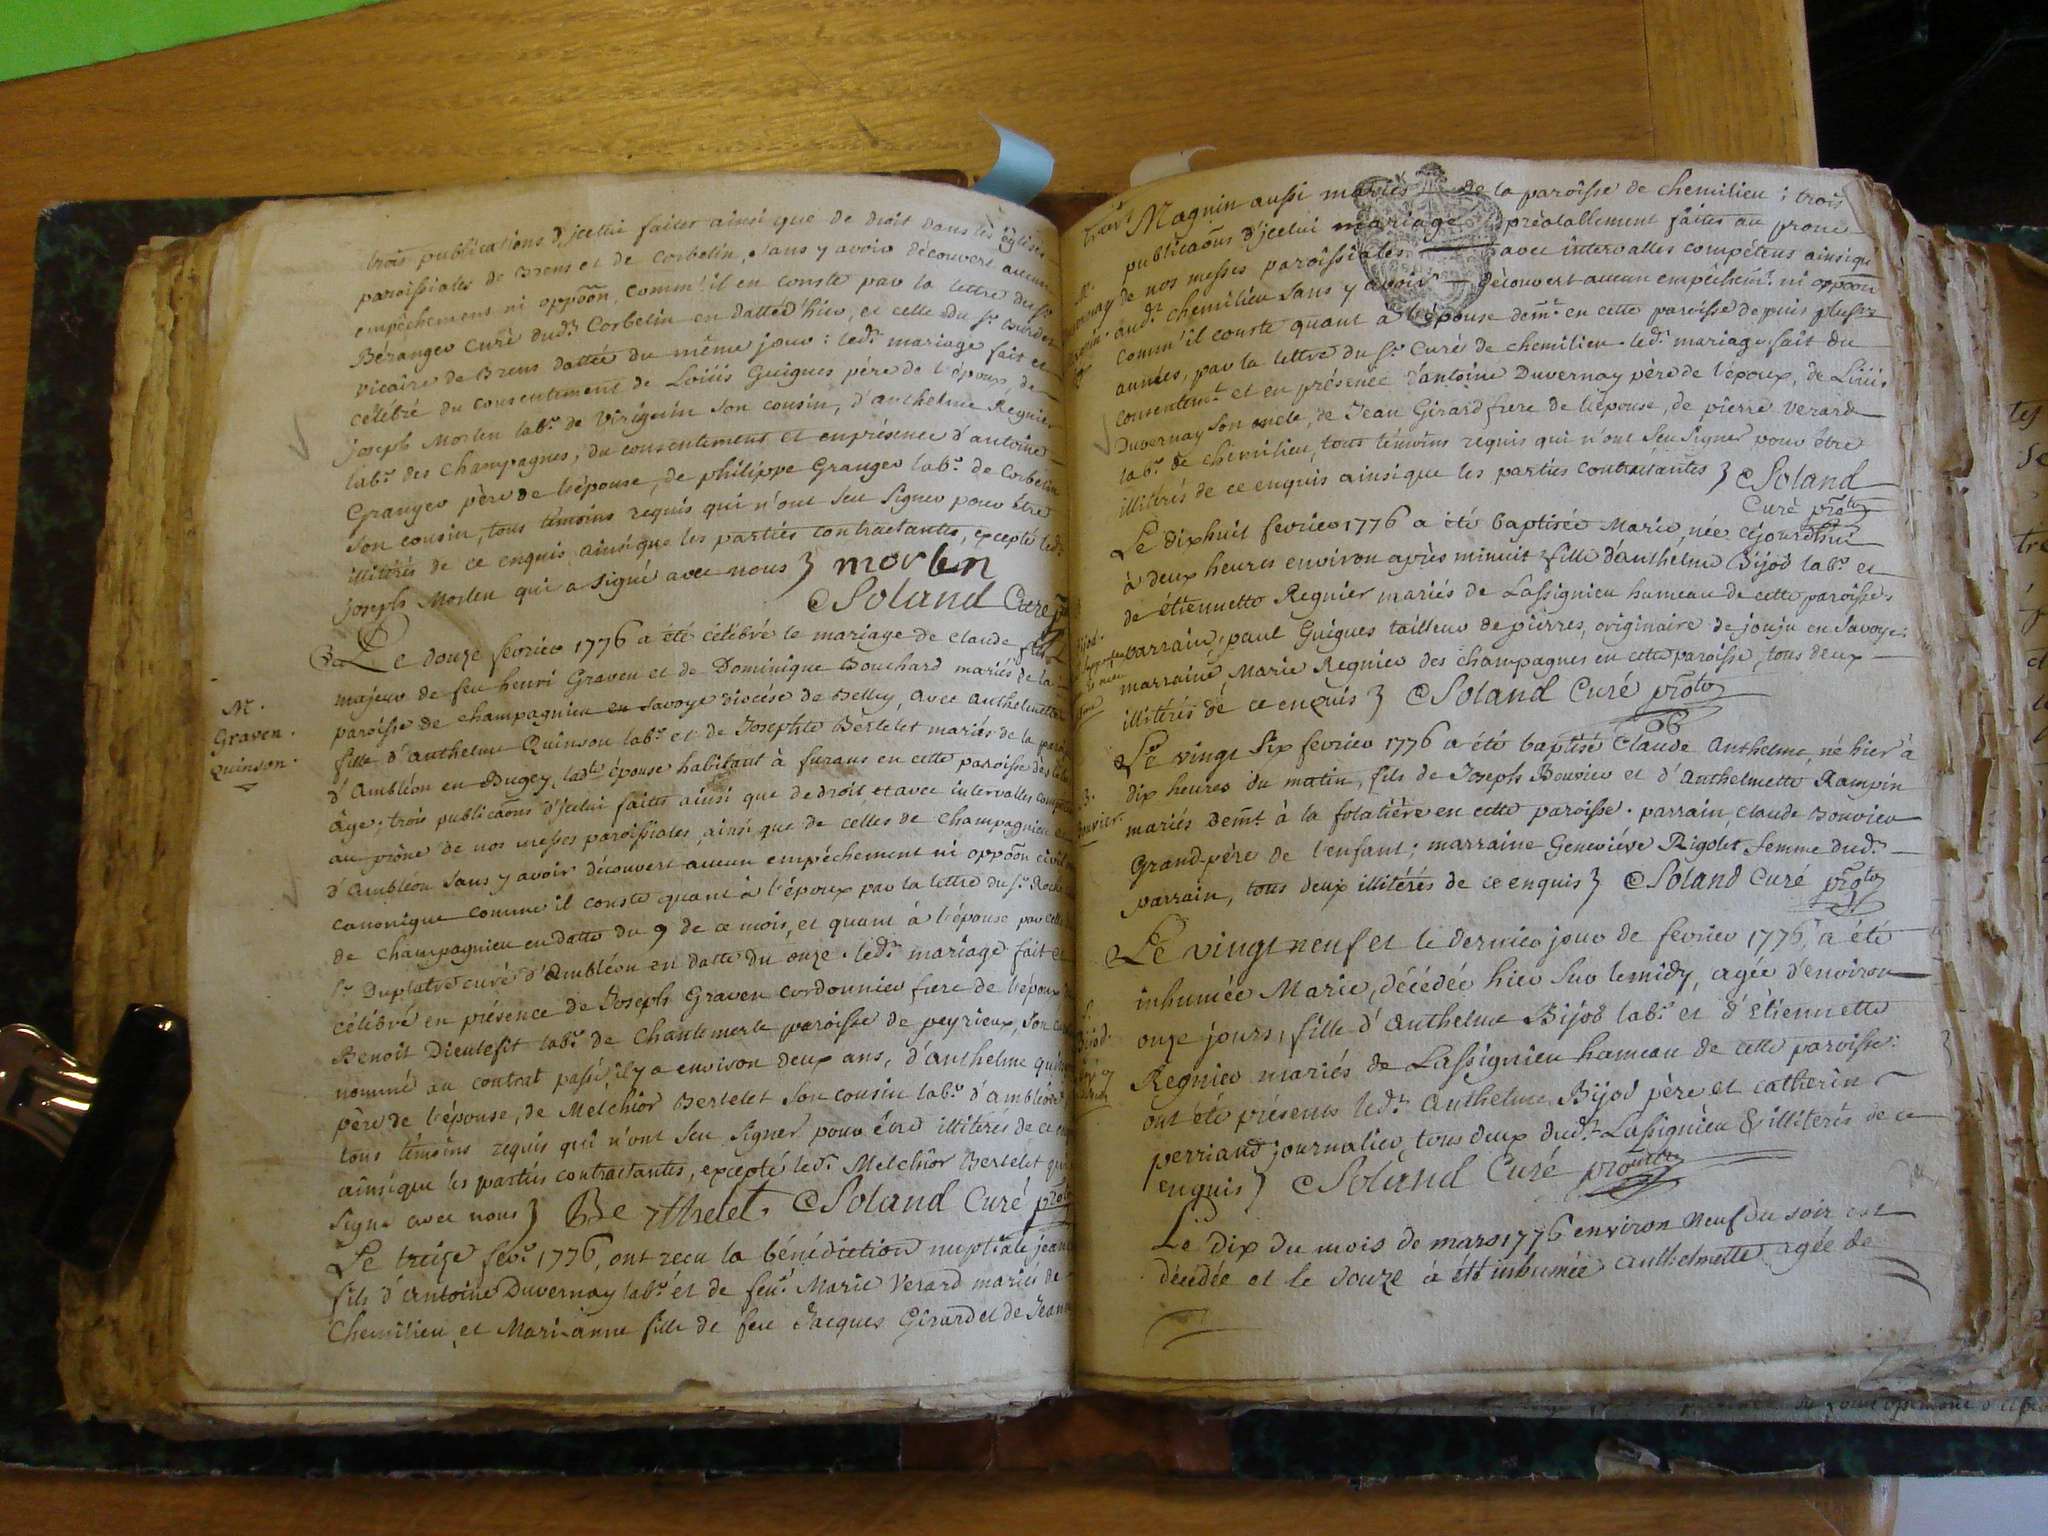 trois publications d'jcelui faites ainsi que de droit dans les églises
paroissiales de Brens et de Corbelin, sans y avoir découvert aucun
empêchemens ni oppoôn, comm'il en conste par la lettre des Srs
Béranger curé dudt Corbelin en datte d'hier, et celle du Sr
vicaire de Brens dattée du même jour : ledt mariage fait et
célébré du consentement de Loüis Guigues père de l'époux, de
joseph Morlen labr de Virignin son cousin, d'anthelme Regnier
labr des Champagnes, du consentement et en présence d'antoine
Granger père de l'épouse, de philippe Granger labr de Corbelin
son cousin, tous témoins requis qui n'ont seu signer pour être
illitérés de ce enquis ainsi que les parties contractantes, excepté ledt
joseph Morlen qui a signé avec nous } morlen
Soland Curé
Le douze fevrier 1776 a été célébré le mariage de claude fils
majeur de feu henri Graven et de Dominique Bouchard mariés de la
paroisse de champagnieu en Savoye diocése de Belley, avec anthelmette
fille d'anthelme Quinson labr et de Josephte Bertelet mariés de la
d'Ambléon en Bugey, ladte épouse habitant à furans en cette paroisse dès
M.
Graven.
Quinson.
âge ; trois publicaôns d'jcelui faites ainsi que de droit, et avec intervalles
au prône de nos messes paroissiales, ainsi que de celles de Champagnieu et
d'Ambléon sans y avoir découvert aucun empêchement ni oppoôn civil
canonique comme il conste quant à l'époux par la lettre du Sr
de champagnieu en datte du 9 de ce mois, et quant à l'épouse par celle
Sr Duplatre curé d'Ambléon en datte du onze. ledt mariage fait et
célébré en présence de Joseph Graven cordonnier frere de l'époux
Benoit Dieulefit labr de Chantemerle paroisse de peyrieux, son
nommé au contrat passé il y a environ deux ans, d'anthelme
père de l'épouse, de Melchior Bertelet son cousin labr d'ambléon
tous témoins requis qui n'ont seu signer pour être illitérés de ce
ainsi que les parties contractantes, excepté ledt Melchior Bertelet qui
signé avec nous } Berthelet. Soland Curé
Le treize fevr 1776, ont reçu la bénédiction nuptiale jean
fils d'antoine Duvernay labr et de feue Marie Verard mariés de
Chemilieu, et Marianne fille de feu Jacques Girard et de Jeanne
Magnin aussi mariés de la paroisse de chemilieu : trois
publicaôns d'jcelui mariage préalablement faites au prone
de nos messes paroissiales avec intervalles compétens ainsi qu'
audt chemilieu sans y avoir découvert aucun empêchemt ni oppoôn
comm'il conste quant à l'épouse demt en cette paroisse depuis plusrs
années, par la lettre du Sr Curé de chemilieu. ledt mariage fait du
consentemt et en présence d'antoine Duvernay père de l'époux, de Loüis
Duvernay son oncle, de Jean Girard frere de l'épouse, de pierre Verard
labr de chemilieu, tous témoins requis qui n'ont seu signer pour être
illitérés de ce enquis ainsi que les parties contractantes } Soland
Curé
Le dixhuit fevrier 1776 a été baptisée Marie, née
à deux heures environ après minuit fille d'anthelme Bijod labr et
de étiennette Regnier mariés de Lassignieu hameau de cette paroisse.
parrain, paul Guigues tailleur de pierres, originaire de jonju en Savoye.
marraine Marie Regnier des champagnes en cette paroisse, tous deux
illitérés de ce enquis } Soland Curé
Le vingt six fevrier 1776 a été baptisé Claude Anthelme, né hier à
dix heures du matin, fils de Joseph Bouvier et d'Anthelmette Rampin
mariés demt à la folatière en cette paroisse. parrain, claude Bouvier
Grand-père de l'enfant ; marraine Geneviéve Rigolet femme dudt
parrain, tous deux illitérés de ce enquis } Soland Curé
Le vingt neuf et le dernier jour de fevrier 1776, a été
inhumée Marie, décédée hier sur le midy, agée d'environ
onze jours, fille d'anthelme Bijod labr et d'étiennette
Regnier mariés de Lassignieu hameau de cette paroisse :
ont été présents ledt anthelme Bijod père et catherin
perriand journalier, tous deux dudt Lassignieu & illitérés de ce
enquis } Soland Curé
Le dix du mois de mars 1776 environ neuf du soir est
décédée et le douze a été inhumée anthelmette agée de